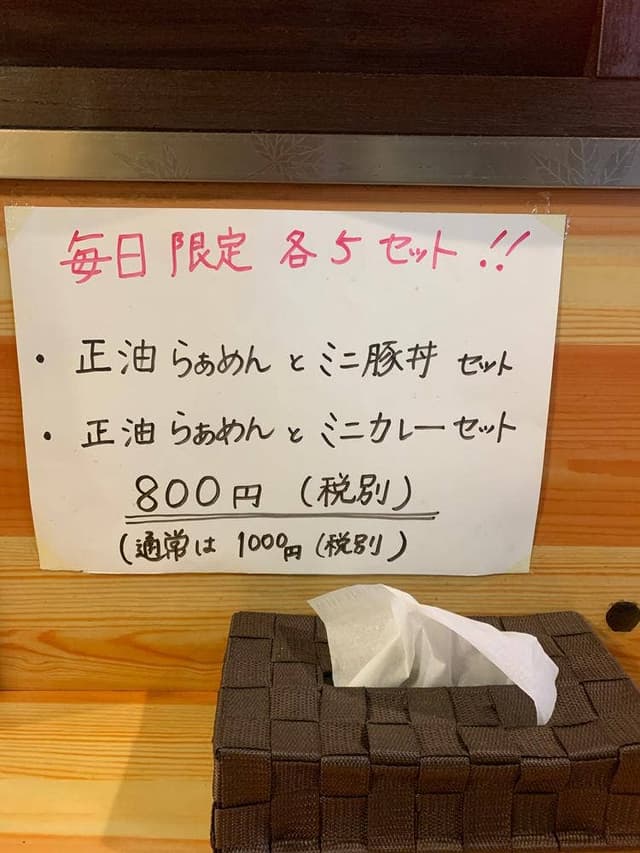 毎日限定 各5セット!!
・正油らぁめんとミニ豚丼 セット
・正油らぁめんとミニカレーセット
800円 (税別)
(通常は 1000円 (税別)